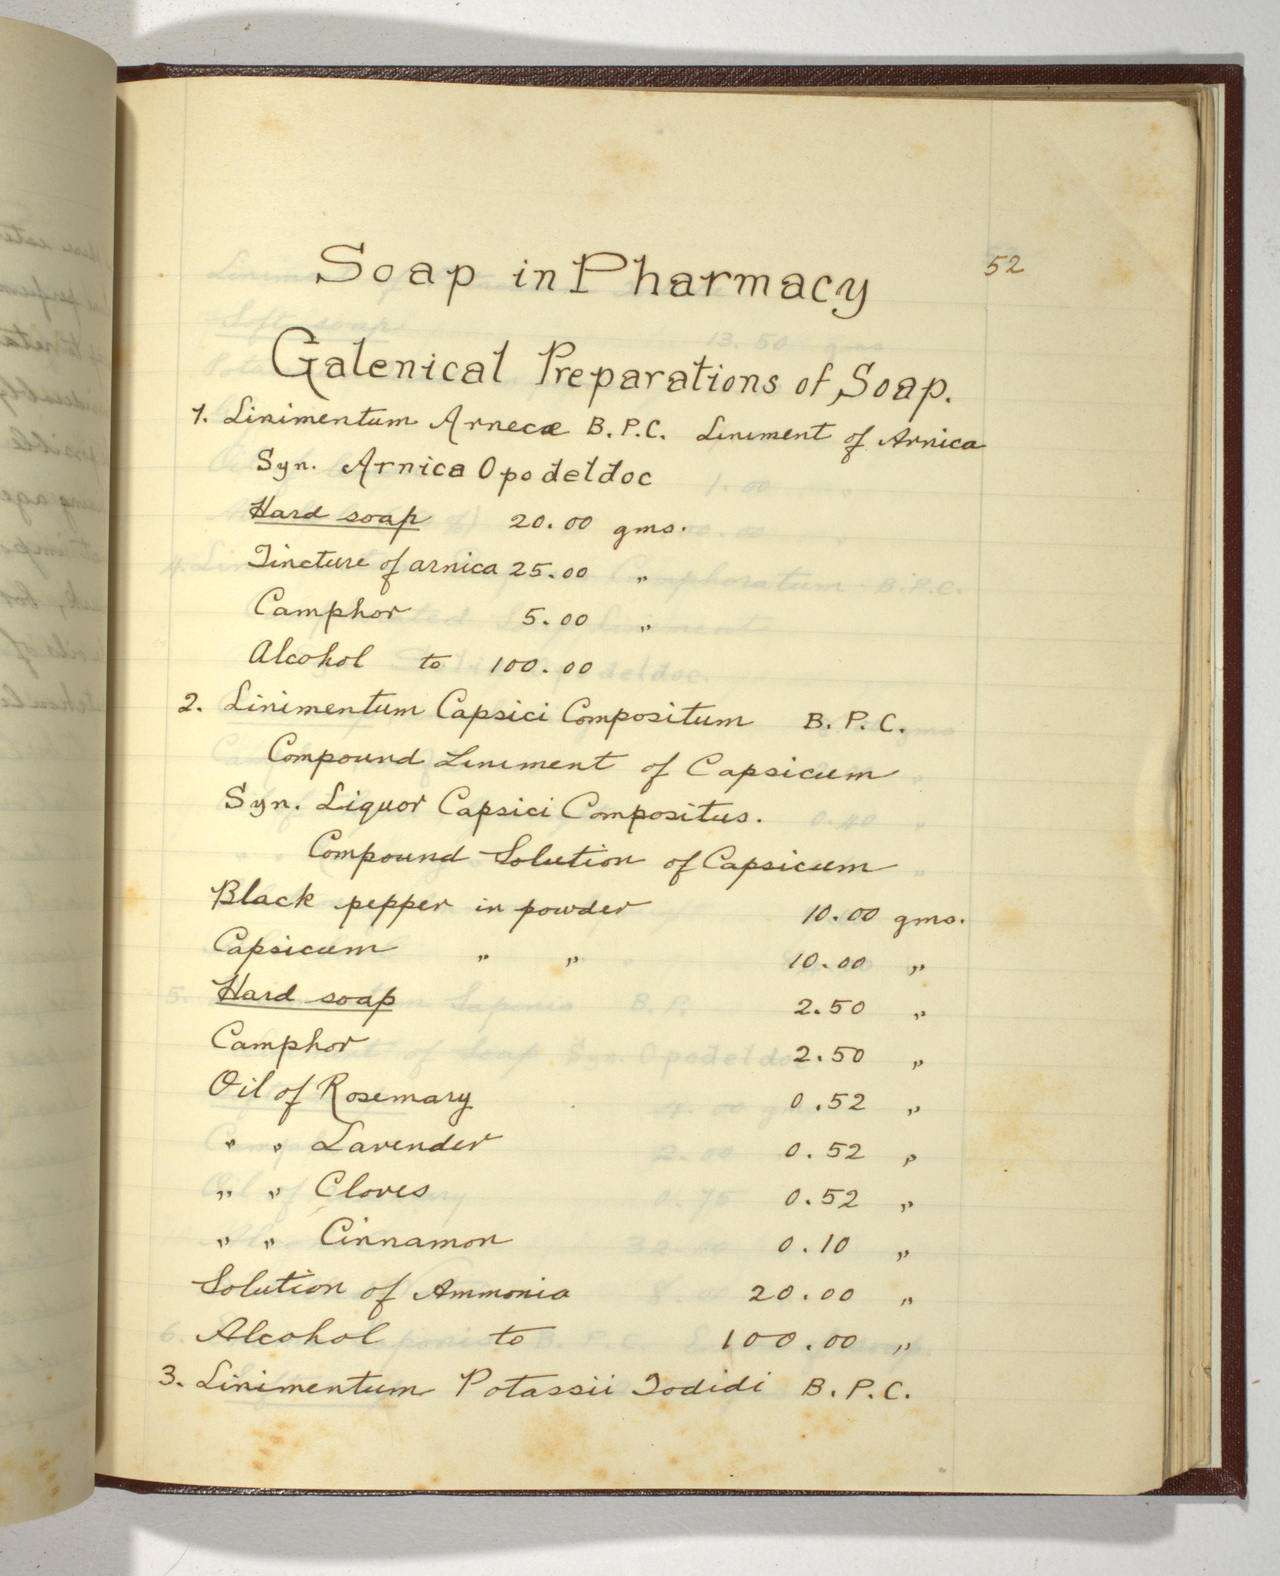 52
Soap in Pharmacy
Galenical Preparations of Soap.
1. Linimentum Arnecæ B.P.C. Liniment of Arnica
Syn. Arnica Opodeldoc
Hard soap 20.00 gms.
Tincture of arnica 25.00 "
Camphor 5.00 "
Alcohol to 100.00
2. Linimentum Capsici Compositum B.P.C.
Compound Liniment of Capsicum
Syn. Liquor Capsici Compositus.
Compound Solution of Capsicum
Black pepper in powder 10.00 gms.
Capsicum " " 10.00 "
Hard soap 2.50 "
Camphor 2.50 "
Oil of Rosemary 0.52 "
" " Lavender 0.52 "
" " Cloves 0.52 "
" " Cinnamon 0.10 "
Solution of Ammonia 20.00 "
Alcohol to 100.00 "
3. Linimentum Potassii Iodidi B.P.C.